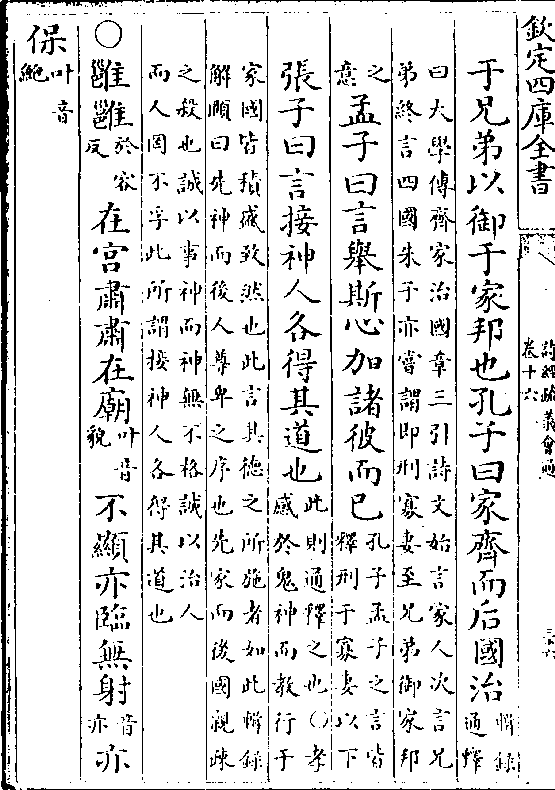 欽定四庫全書
詩經疏義會通
卷十六
于兄弟以御于家邦也孔子曰家齊而后國治輯録通釋
曰大學傳齊家治國章三引詩文始言家人次言兄
弟終言四國朱子亦嘗謂即刑寡妻至兄弟御家邦
之意孟子曰言舉斯心加諸彼而已孔子孟子之言皆釋刑于寡妻以下
張子曰言接神人各得其道也此則通釋之也〇孝感於鬼神而教行于
家國皆積盛致然也此言其德之所施者如此輯録
解頤曰先神而後人尊卑之序也先家而後國親疎
之殺也誠以事神而神無不格誠以治人
而人罔不孚此所謂接神人各得其道也
〇雝雝於容反在宫肅肅在廟叶音貌不顯亦臨無射音亦亦
保叶音鮑